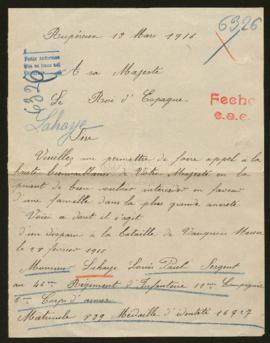 6326
13 Mars 1916
6326
A sa Majesté
Le Roi d'Espagne
Fecho
e.a.c.
Lahaye
Sire
Veuillez me permettre de faire appel à la
haute bienveillance de Votre Majesté en la
priant de bien vouloir intercéder en faveur
d'une famille dans la plus grande anxiété
Voici dont il s'agit
d'un disparu à la bataille de Vauquois Meuse
le 28 février 1915
Monsieur Lahaye Louis Paul Sergent
au 46me Régiment d'Infanterie Compagnie
5me Corps d'armée
Matricule 829 Médaille d'identité 16927